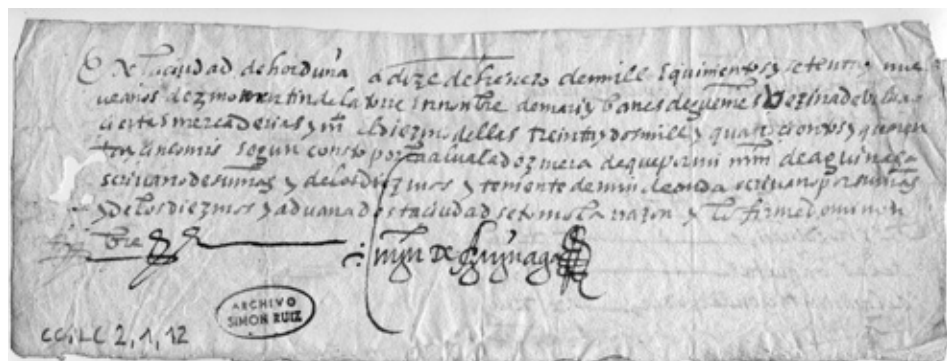 En la ciudad de horduña a doze de henero de mill e quinientos y setenta y nue
ve años dezmo martin de la torre en nonbre de maria ybanes de guemes vezina de bilbao
ciertas mercaderias y mto el diezmo dellas treinta y dos mill y quatrocientos y quaren
ta y cinco mrs segun consto por su alvala dezmera de que por mi mrn de aguinaga
scrivano de sus mags y de los diezmos y teniente de min de onda scrivano por su mag
y de los diezmos y aduana desta ciudad se tomo la razon y lo firme de mi non
bre
mrn de aguinaga
ARCHIVO
SIMON RUIZ
CC, LC 2, 1, 12